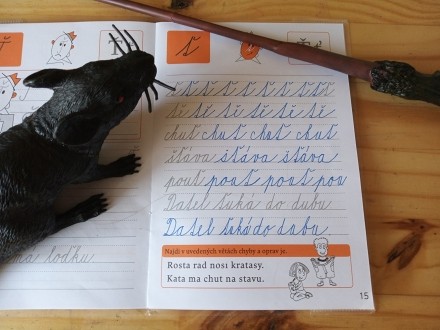 ť
ť ť ť ť ť ť ť ť
tě tě tě tě tě tě
chuť chuť chuť chuť
šťáva šťáva šťáva
pouť pouť pouť pou
Datel ťuká do dubu
Datel ťuká do dubu.
Najdi v uvedených větách chyby a oprav je.
Rosta rad nosi kratasy.
Kata ma chut na stavu.
ma loďku
15